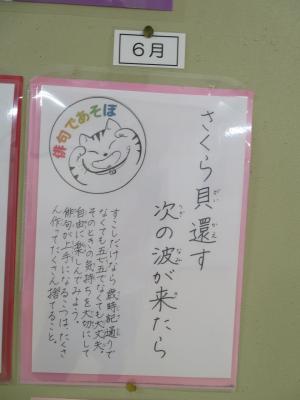 6月
俳句であそぼ
さくら貝還す
次の波が来たら
すこしだけなら歳時記通りで
なくても五七五でなくても大丈夫。
そのときの気持ちを大切にして
自由に楽しんでみよう。
俳句が上手になるこつは、たくさ
ん作ってたくさん捨てること。